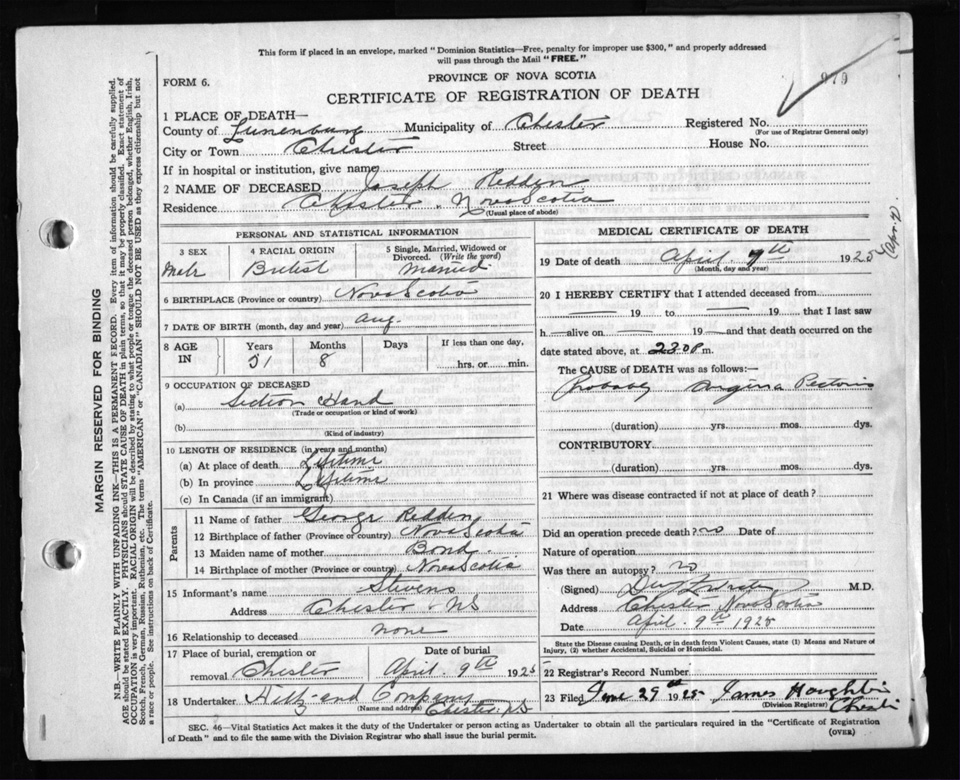 This form if placed in an envelope, marked "Dominion Statistics—Free, penalty for improper use $300," and properly addressed
will pass through the Mail "FREE."
PROVINCE OF NOVA SCOTIA
979
FORM 6.
CERTIFICATE OF REGISTRATION OF DEATH
1 PLACE OF DEATH—
County of Lunenburg Municipality of Chester Registered No.
(For use of Registrar General only)
City or Town Chester Street House No.
If in hospital or institution, give name
2 NAME OF DECEASED Joseph Redden
Residence Chester. Nova Scotia
(Usual place of abode)
PERSONAL AND STATISTICAL INFORMATION
3 SEX 4 RACIAL ORIGIN 5 Single, Married, Widowed or Divorced. (Write the word)
Male British Married
6 BIRTHPLACE (Province or country) Nova Scotia
7 DATE OF BIRTH (month, day and year) Aug.
8 AGE IN Years Months Days If less than one day,
51 8 hrs. or min.
9 OCCUPATION OF DECEASED
(a) Section Hand
(Trade or occupation or kind of work)
(b)
(Kind of industry)
10 LENGTH OF RESIDENCE (in years and months)
(a) At place of death Lifetime
(b) In province Lifetime
(c) In Canada (if an immigrant)
Parents
11 Name of father George Redden
12 Birthplace of father (Province or country) Nova Scotia
13 Maiden name of mother Bond.
14 Birthplace of mother (Province or country) Nova Scotia
15 Informant's name Stevens
Address Chester NS
16 Relationship to deceased none
17 Place of burial, cremation or Date of burial
removal Chester April 9th 1925
18 Undertaker Hiltz and Company
(Name and address) Chester, NS
MEDICAL CERTIFICATE OF DEATH
19 Date of death April 7th 1925
(Month, day and year)
20 I HEREBY CERTIFY that I attended deceased from
19 to 19 that I last saw
h alive on 19 and that death occurred on
date stated above, at 2:30 P m.
The CAUSE of DEATH was as follows:—
Probably Angina Pectoris
(duration) yrs. mos. dys.
CONTRIBUTORY
(duration) yrs. mos. dys.
21 Where was disease contracted if not at place of death?
Did an operation precede death? no Date of
Nature of operation
Was there an autopsy? no
(Signed) M.D.
Address Chester Nova Scotia
Date April 9th 1925
State the Disease causing Death, or in death from Violent Causes, state (1) Means and Nature of
Injury, (2) whether Accidental, Suicidal or Homicidal.
22 Registrar's Record Number
23 Filed June 29th 1925 James Houghton
(Division Registrar) Chester
SEC. 46—Vital Statistics Act makes it the duty of the Undertaker or person acting as Undertaker to obtain all the particulars required in the "Certificate of Registration
of Death" and to file the same with the Division Registrar who shall issue the burial permit.
(OVER)
MARGIN RESERVED FOR BINDING
N.B.—WRITE PLAINLY WITH UNFADING INK—THIS IS A PERMANENT RECORD. Every item of information should be carefully supplied.
AGE should be stated EXACTLY. PHYSICIANS should STATE CAUSE OF DEATH in plain terms, so that it may be properly classified. Exact statement of
OCCUPATION is very important. RACIAL ORIGIN will be described by stating to what people or tongue the deceased person belonged, whether English, Irish,
Scotch, French, German, Russian, Ruthenian, etc. The terms "AMERICAN" or "CANADIAN" SHOULD NOT BE USED as they express citizenship but not
a race or people. See instructions on back of Certificate.